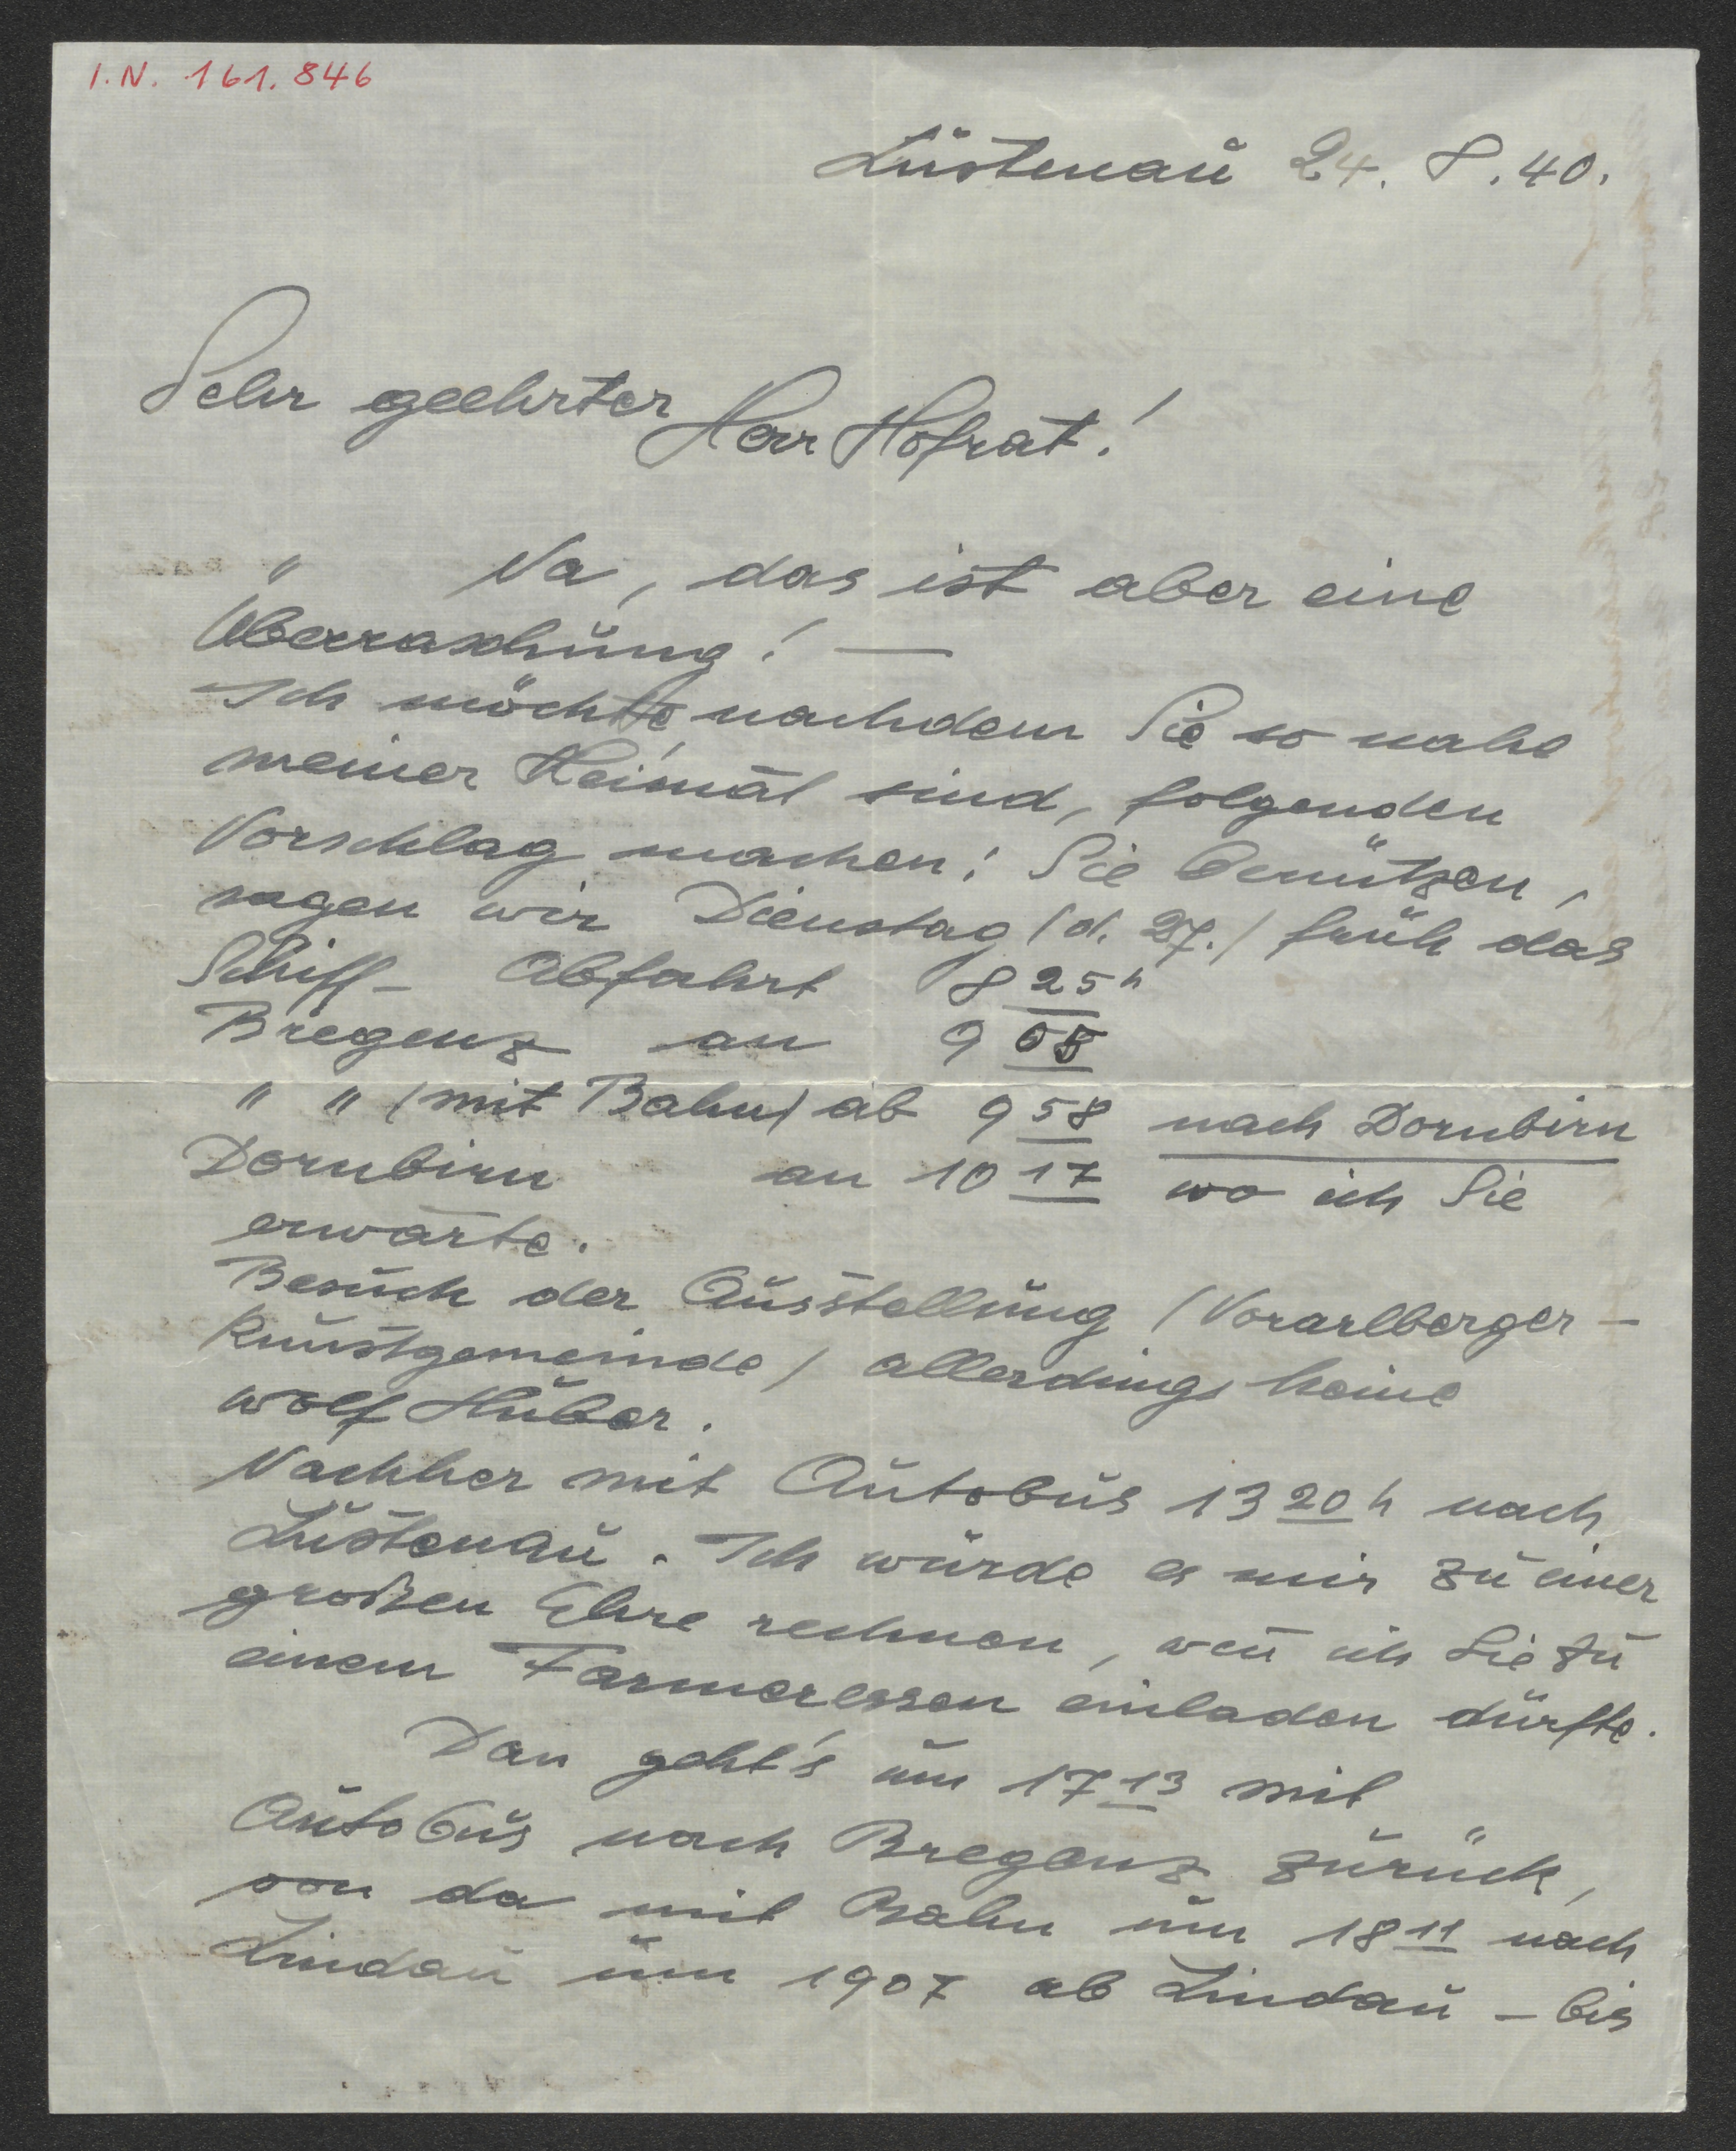 I.N. 161.846
Lustenau 24. 8. 40.
Sehr geehrter
Herr Hofrat!
Na, das ist aber eine
Überraschung! —
Ich möchte, nachdem Sie so nahe
meiner Heimat sind, folgenden
Vorschlag machen: Sie benützen,
sagen wir Dienstag (d. 27.) früh das
Schiff - Abfahrt 8 25 h
Bregenz an 9 08
" " (mit Bahn) ab 9 58 nach Dornbirn
Dornbirn an 10 17 wo ich Sie
erwarte.
Besuch der Ausstellung (Vorarlberger -
Kunstgemeinde) allerdings keine
Wolf Huber.
Nachher mit Autobus 13 20 h nach
Lustenau. Ich würde es mir zu einer
großen Ehre rechnen, weñ ich Sie zu
einem Farmeressen einladen dürfte.
Dan geht's um 17 13 mit
Autobus nach Bregenz zurück,
von da mit Bahn um 18 11 nach
Lindau um 1907 ab Lindau - bis